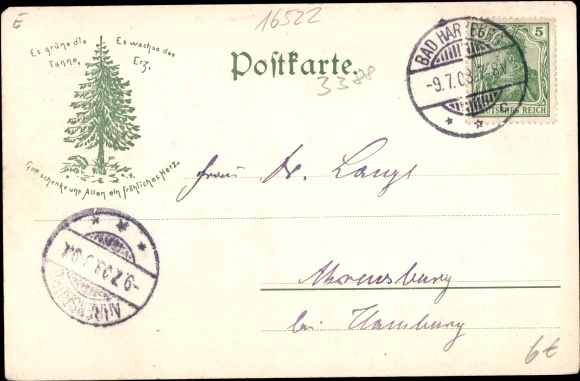 E
16522
Es grüne die Es wachse das
Tanne, Erz.
Gott schenke uns Allen ein fröhliches Herz.
Postkarte.
3388
BAD HARZBURG
-9.7.03. 7-8V
c
5
DEUTSCHES REICH
Frau Dr. Lange
Ahrensburg
bei Hamburg
AHRENSBURG
-9.7.03.
6€